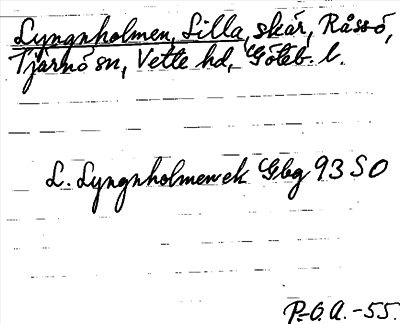 Lyngnholmen, Lilla, skär, Råssö,
Tjärnö sn, Vette hd, Göteb. l.
L. Lyngnholmen ek Gbg 93 SO
P.-O.A. -55.